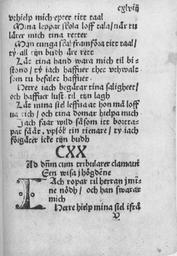 cxlviij
vthielp mich epter titt taal
Mina leppar skola loff tala/ när tu
lärer mich tina retter
Min tunga skal framföra titt taal/
ty all tijn budh äre rett
Lät tina hand wara mich til bi
stond/ ty iach haffuer thet vthwalt
som tu befaler haffuer
Herre iach begärar tina saligheet/
och haffuer lust til tijn lagh
Lät mina siel leffua at hon må loff
ua tich/ och tina domar hielpa mich
Iach faar wild såsom itt borttap
pat fåår/ vpsök tin tienare/ ty iach
förgäter icke tijn budh
CXX
Ad dñm cum tribularer clamaui
Een wisa j högdene
Iach ropar til herran j mi
ne nödh/ och han swarar
mich
Herre hielp mina siel ifrå